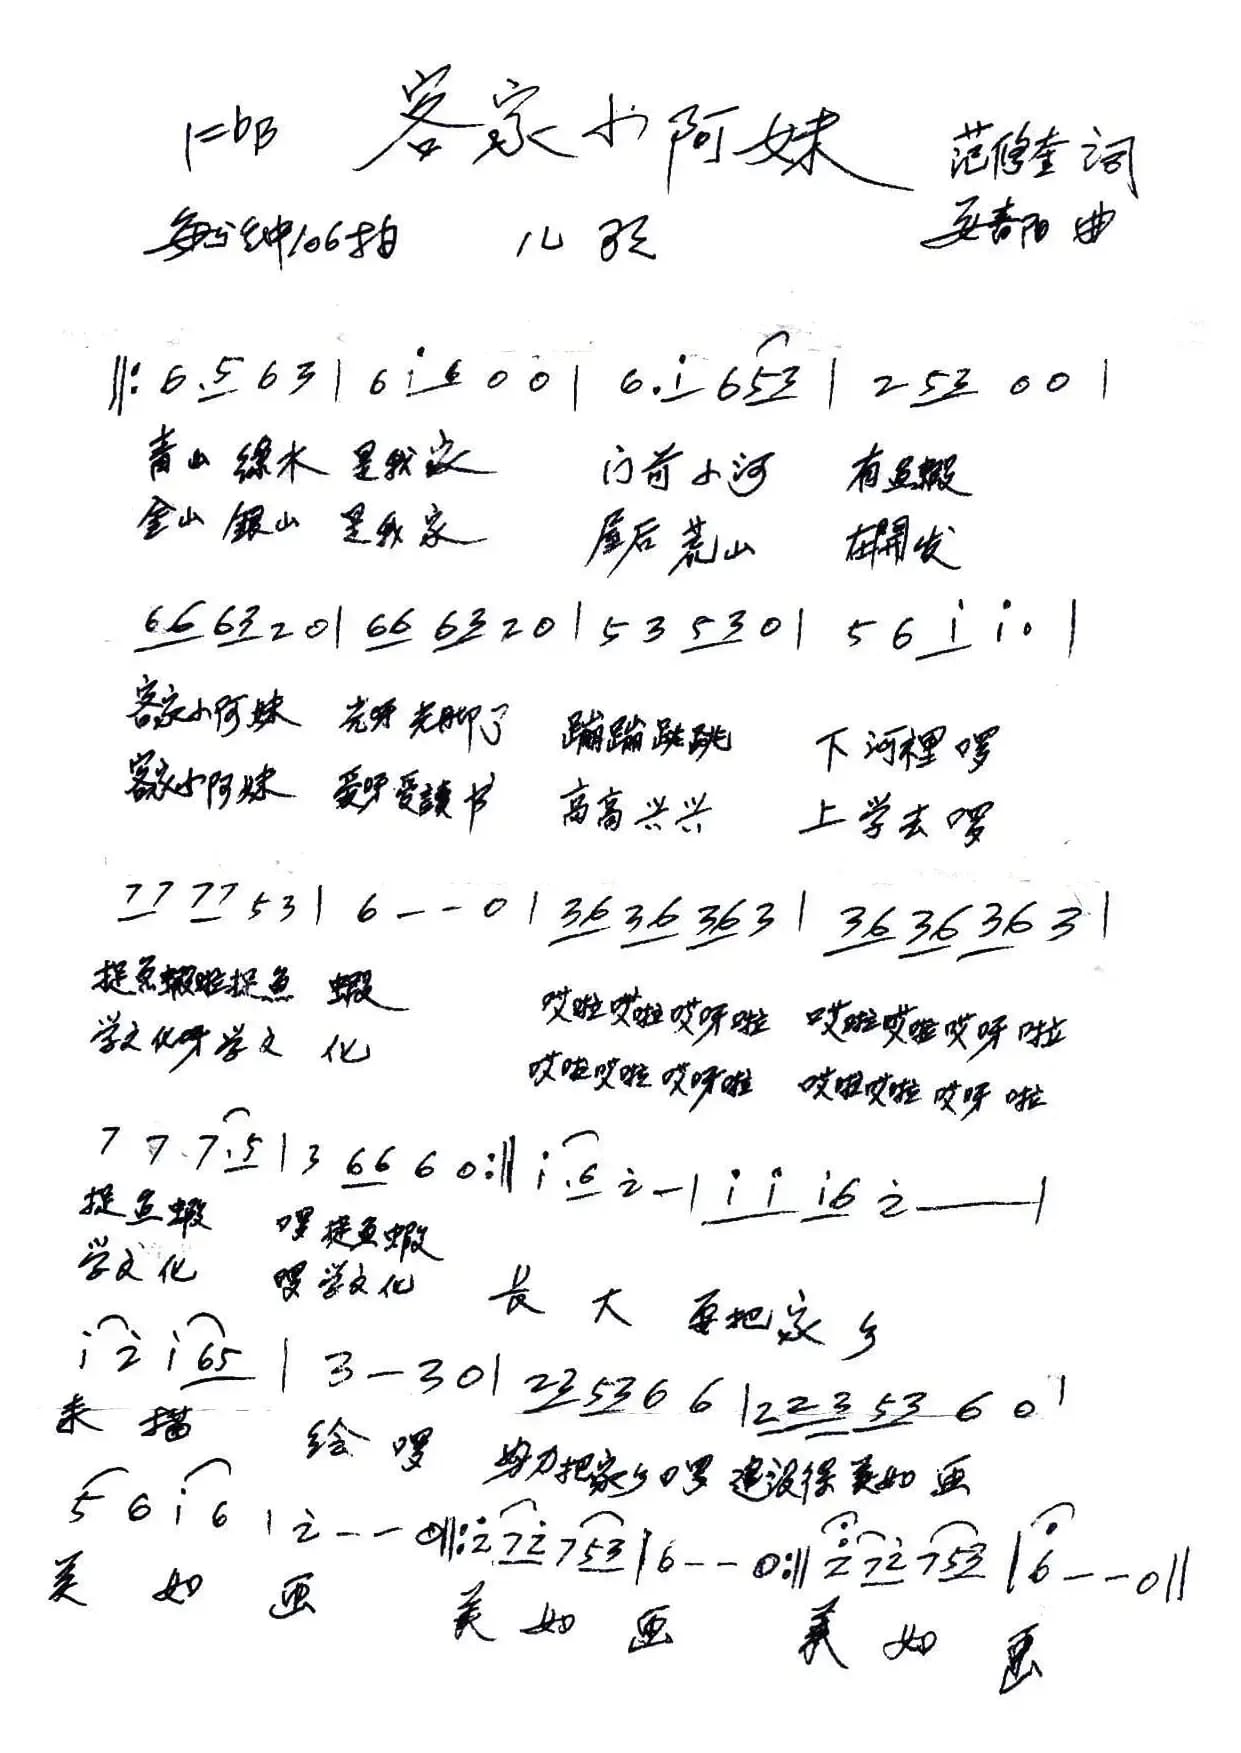 1=bB 客家小阿妹 范修奎 词
每分钟106拍 儿歌 青阳 曲
‖: 6. 5 6 3 | 6 i 6 0 0 | 6. i 6 5 3 | 2 5 3 0 0 |
青山 綠水 是我家 门前小河 有鱼蝦
金山 銀山 是我家 屋后荒山 在開发
6 6 6 3 2 0 | 6 6 6 3 2 0 | 5 3 5 3 0 | 5 6 i i. |
客家小阿妹 光呀光脚丫 蹦蹦跳跳 下河裡啰
客家小阿妹 爱呀爱讀书 高高兴兴 上学去啰
7 7 7 7 5 3 | 6 - - 0 | 3 6 3 6 3 6 3 | 3 6 3 6 3 6 3 |
捉鱼蝦啦捉鱼 蝦 哎啦哎啦哎呀啦 哎啦哎啦哎呀啦
学文化呀学文 化 哎啦哎啦哎呀啦 哎啦哎啦哎呀啦
7 7 7. 5 | 3 6 6 6 0 :‖ i. 6 2 - | i i i 6 2 — |
捉鱼蝦 啰捉鱼蝦
学文化 啰学文化 长大 要把家乡
i 2 i 6 5 | 3 - 3 0 | 2 3 5 3 6 6 | 2 2 3 5 3 6 0 |
来描 绘啰 努力把家乡啰 建设得美如画
5 6 i 6 | 2 - - 0 ‖: 2 7 2 7 5 3 | 6 - - 0 :‖ 2 7 2 7 5 3 | 6 - - 0 ‖
美如画 美如画 美如画